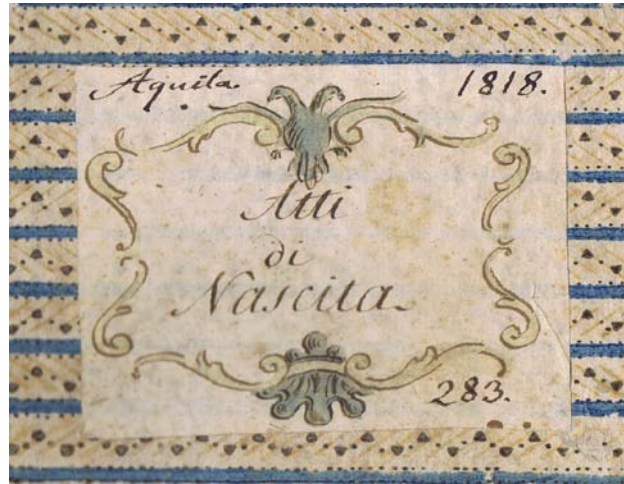 Aquila. 1818.
Atti
di
Nascita
283.